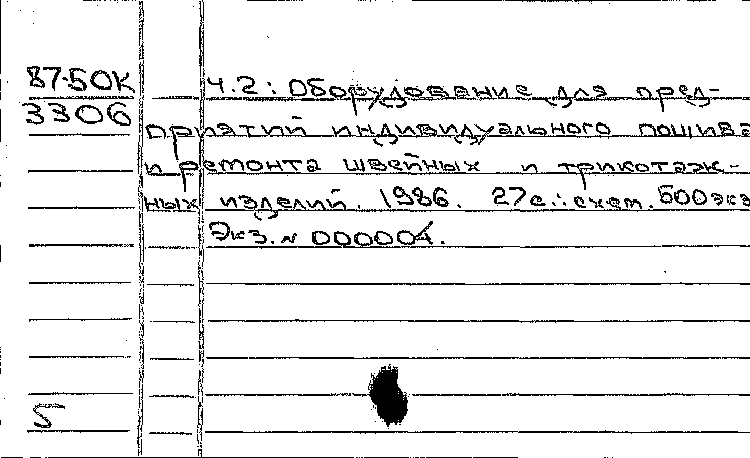 87-50К
3306
Ч.2: Оборудование для пред-
приятий индивидуального пошива
и ремонта швейных и трикотаж-
ных изделий. 1986. 27с.:схем. 500экз
Экз. N 000004.
5